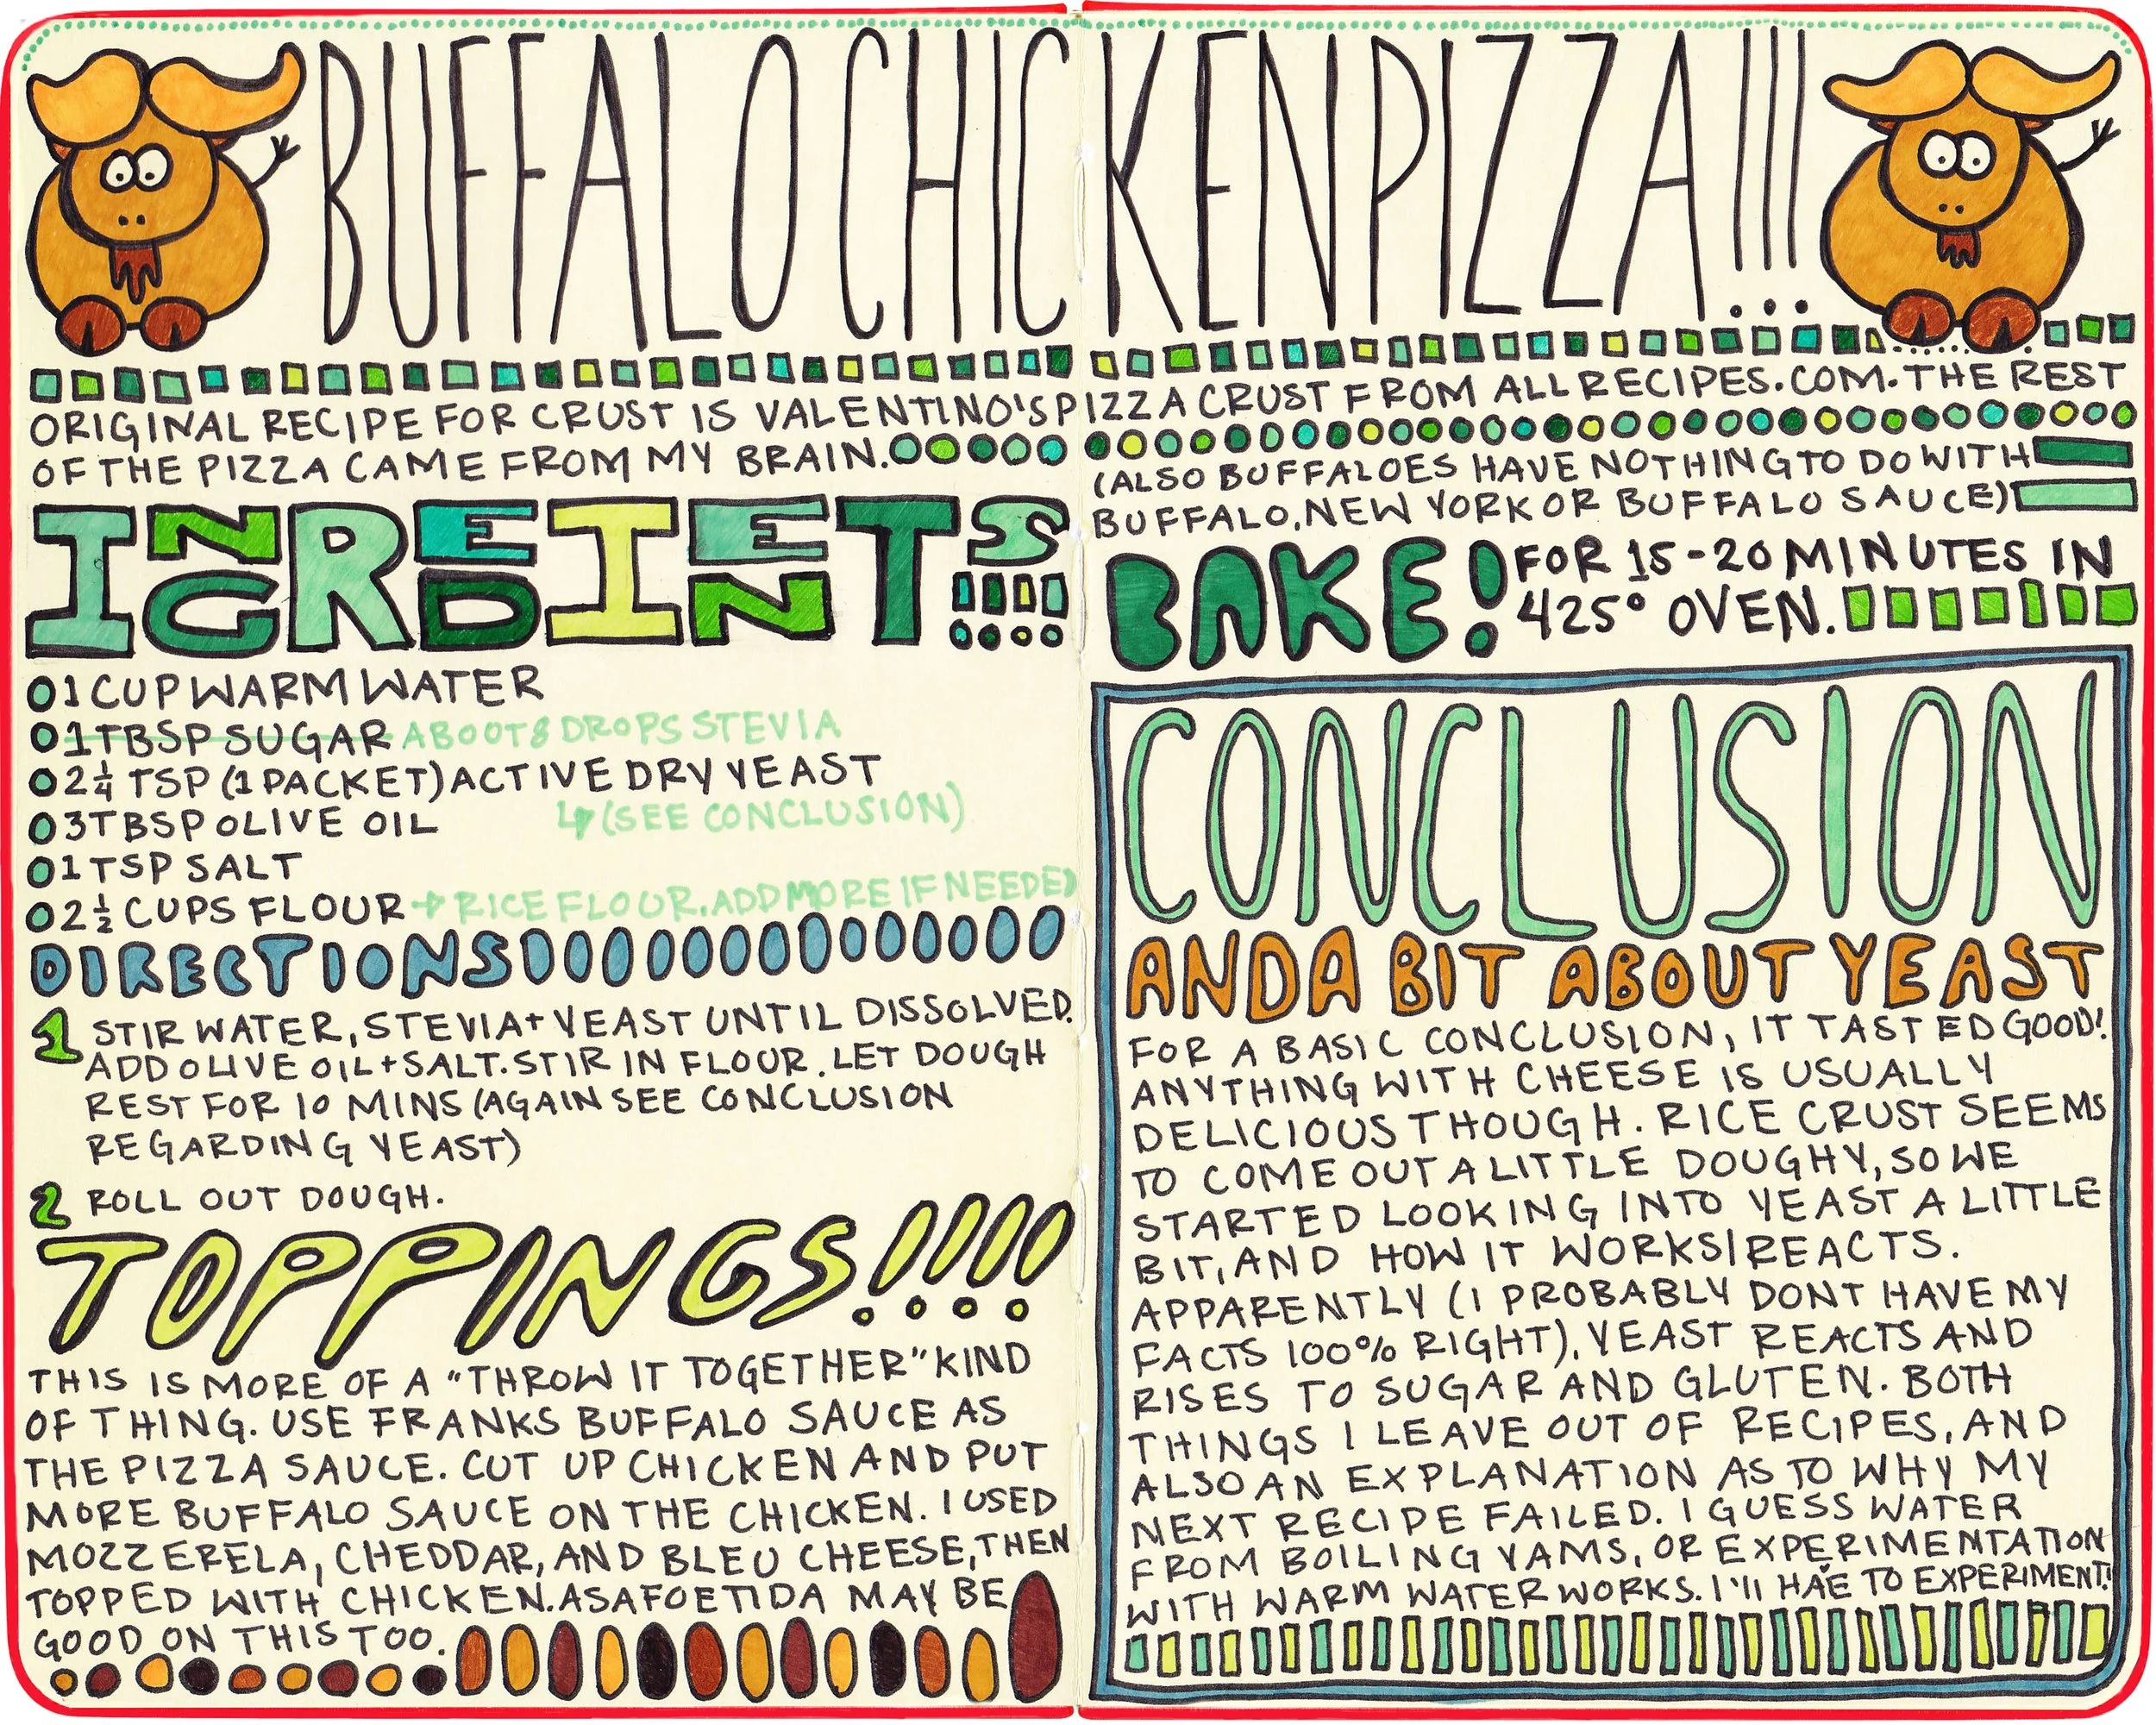 BUFFALO CHICKEN PIZZA!!!
ORIGINAL RECIPE FOR CRUST IS VALENTINO'S PIZZA CRUST FROM ALLRECIPES.COM. THE REST
OF THE PIZZA CAME FROM MY BRAIN.
(ALSO BUFFALOES HAVE NOTHING TO DO WITH
BUFFALO, NEW YORK OR BUFFALO SAUCE)
INGREDIENTS!!!!
1 CUP WARM WATER
1 TBSP SUGAR ABOOT 8 DROPS STEVIA
2 1/4 TSP (1 PACKET) ACTIVE DRY YEAST
↳ (SEE CONCLUSION)
3 TBSP OLIVE OIL
1 TSP SALT
2 1/2 CUPS FLOUR → RICE FLOUR. ADD MORE IF NEEDED
DIRECTIONS
1 STIR WATER, STEVIA + YEAST UNTIL DISSOLVED.
ADD OLIVE OIL + SALT. STIR IN FLOUR. LET DOUGH
REST FOR 10 MINS (AGAIN SEE CONCLUSION
REGARDING YEAST)
2 ROLL OUT DOUGH.
TOPPINGS!!!!
THIS IS MORE OF A "THROW IT TOGETHER" KIND
OF THING. USE FRANKS BUFFALO SAUCE AS
THE PIZZA SAUCE. CUT UP CHICKEN AND PUT
MORE BUFFALO SAUCE ON THE CHICKEN. I USED
MOZZERELA, CHEDDAR, AND BLEU CHEESE, THEN
TOPPED WITH CHICKEN. ASAFOETIDA MAY BE
GOOD ON THIS TOO.
BAKE! FOR 15-20 MINUTES IN
425° OVEN.
CONCLUSION
AND A BIT ABOUT YEAST
FOR A BASIC CONCLUSION, IT TASTED GOOD!
ANYTHING WITH CHEESE IS USUALLY
DELICIOUS THOUGH. RICE CRUST SEEMS
TO COME OUT A LITTLE DOUGHY, SO WE
STARTED LOOKING INTO YEAST A LITTLE
BIT, AND HOW IT WORKS/REACTS.
APPARENTLY (I PROBABLY DONT HAVE MY
FACTS 100% RIGHT), YEAST REACTS AND
RISES TO SUGAR AND GLUTEN. BOTH
THINGS I LEAVE OUT OF RECIPES, AND
ALSO AN EXPLANATION AS TO WHY MY
NEXT RECIPE FAILED. I GUESS WATER
FROM BOILING YAMS, OR EXPERIMENTATION
WITH WARM WATER WORKS. I'll HAVE TO EXPERIMENT!